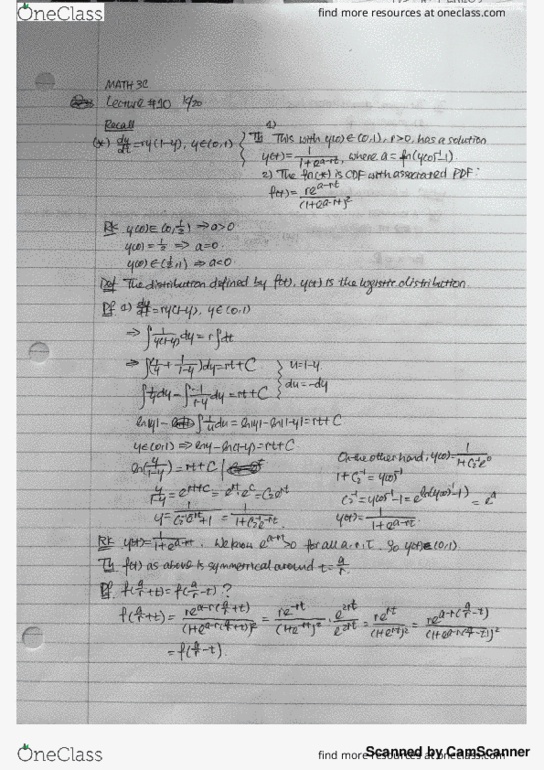 OneClass
find more resources at oneclass.com
MATH 3C
Lecture #20
Recall
(*) dy/dt = ry(1-y), y∈(0,1)
Th 1) This with y(0)∈(0,1), r>0, has a solution
y(t) = 1/(1+e^(a-rt)), where a = ln(y(0)^-1 -1)
2) The fn(*) is CDF with associated PDF:
f(t) = re^(a-rt)/(1+e^(a-rt))^2
Rk y(0)∈(0,1/2) ⇒ a>0
y(0) = 1/2 ⇒ a=0
y(0)∈(1/2,1) ⇒ a<0
Def The distribution defined by f(t), y(t) is the logistic distribution.
Pf 1) dy/dt = ry(1-y), y∈(0,1)
⇒ ∫ 1/(y(1-y)) dy = r∫dt
⇒ ∫(1/y + 1/(1-y))dy = rt+C } u=1-y
∫ 1/y dy - ∫ -1/(1-y) dy = rt+C } du=-dy
ln|y| - ∫ 1/u du = ln|y| - ln|1-y| = rt+C
y∈(0,1) ⇒ ln y - ln(1-y) = rt+C
ln(y/(1-y)) = rt+C
y/(1-y) = e^(rt+C) = e^rt e^C = C₂e^rt
y = 1/(C₂^-1 e^-rt +1) = 1/(1+C₂^-1 e^-rt)
On the other hand, y(0) = 1/(1+C₂^-1 e^0)
1+C₂^-1 = y(0)^-1
C₂^-1 = y(0)^-1 -1 = e^(ln(y(0)^-1 -1)) = e^a
y(t) = 1/(1+e^(a-rt)).
Rk y(t) = 1/(1+e^(a-rt)). We know e^(a-rt)>0 for all a, r, t. So y(t)∈(0,1).
Th f(t) as above is symmetrical around t = a/r.
Pf f(a/r+t) = f(a/r-t)?
f(a/r+t) = re^(a-r(a/r+t))/(1+e^(a-r(a/r+t)))^2 = re^-rt/(1+e^-rt)^2 · e^2rt/e^2rt = re^rt/(1+e^rt)^2 = re^(a-r(a/r-t))/(1+e^(a-r(a/r-t)))^2
= f(a/r-t).
OneClass
find more resources at oneclass.com
Scanned by CamScanner